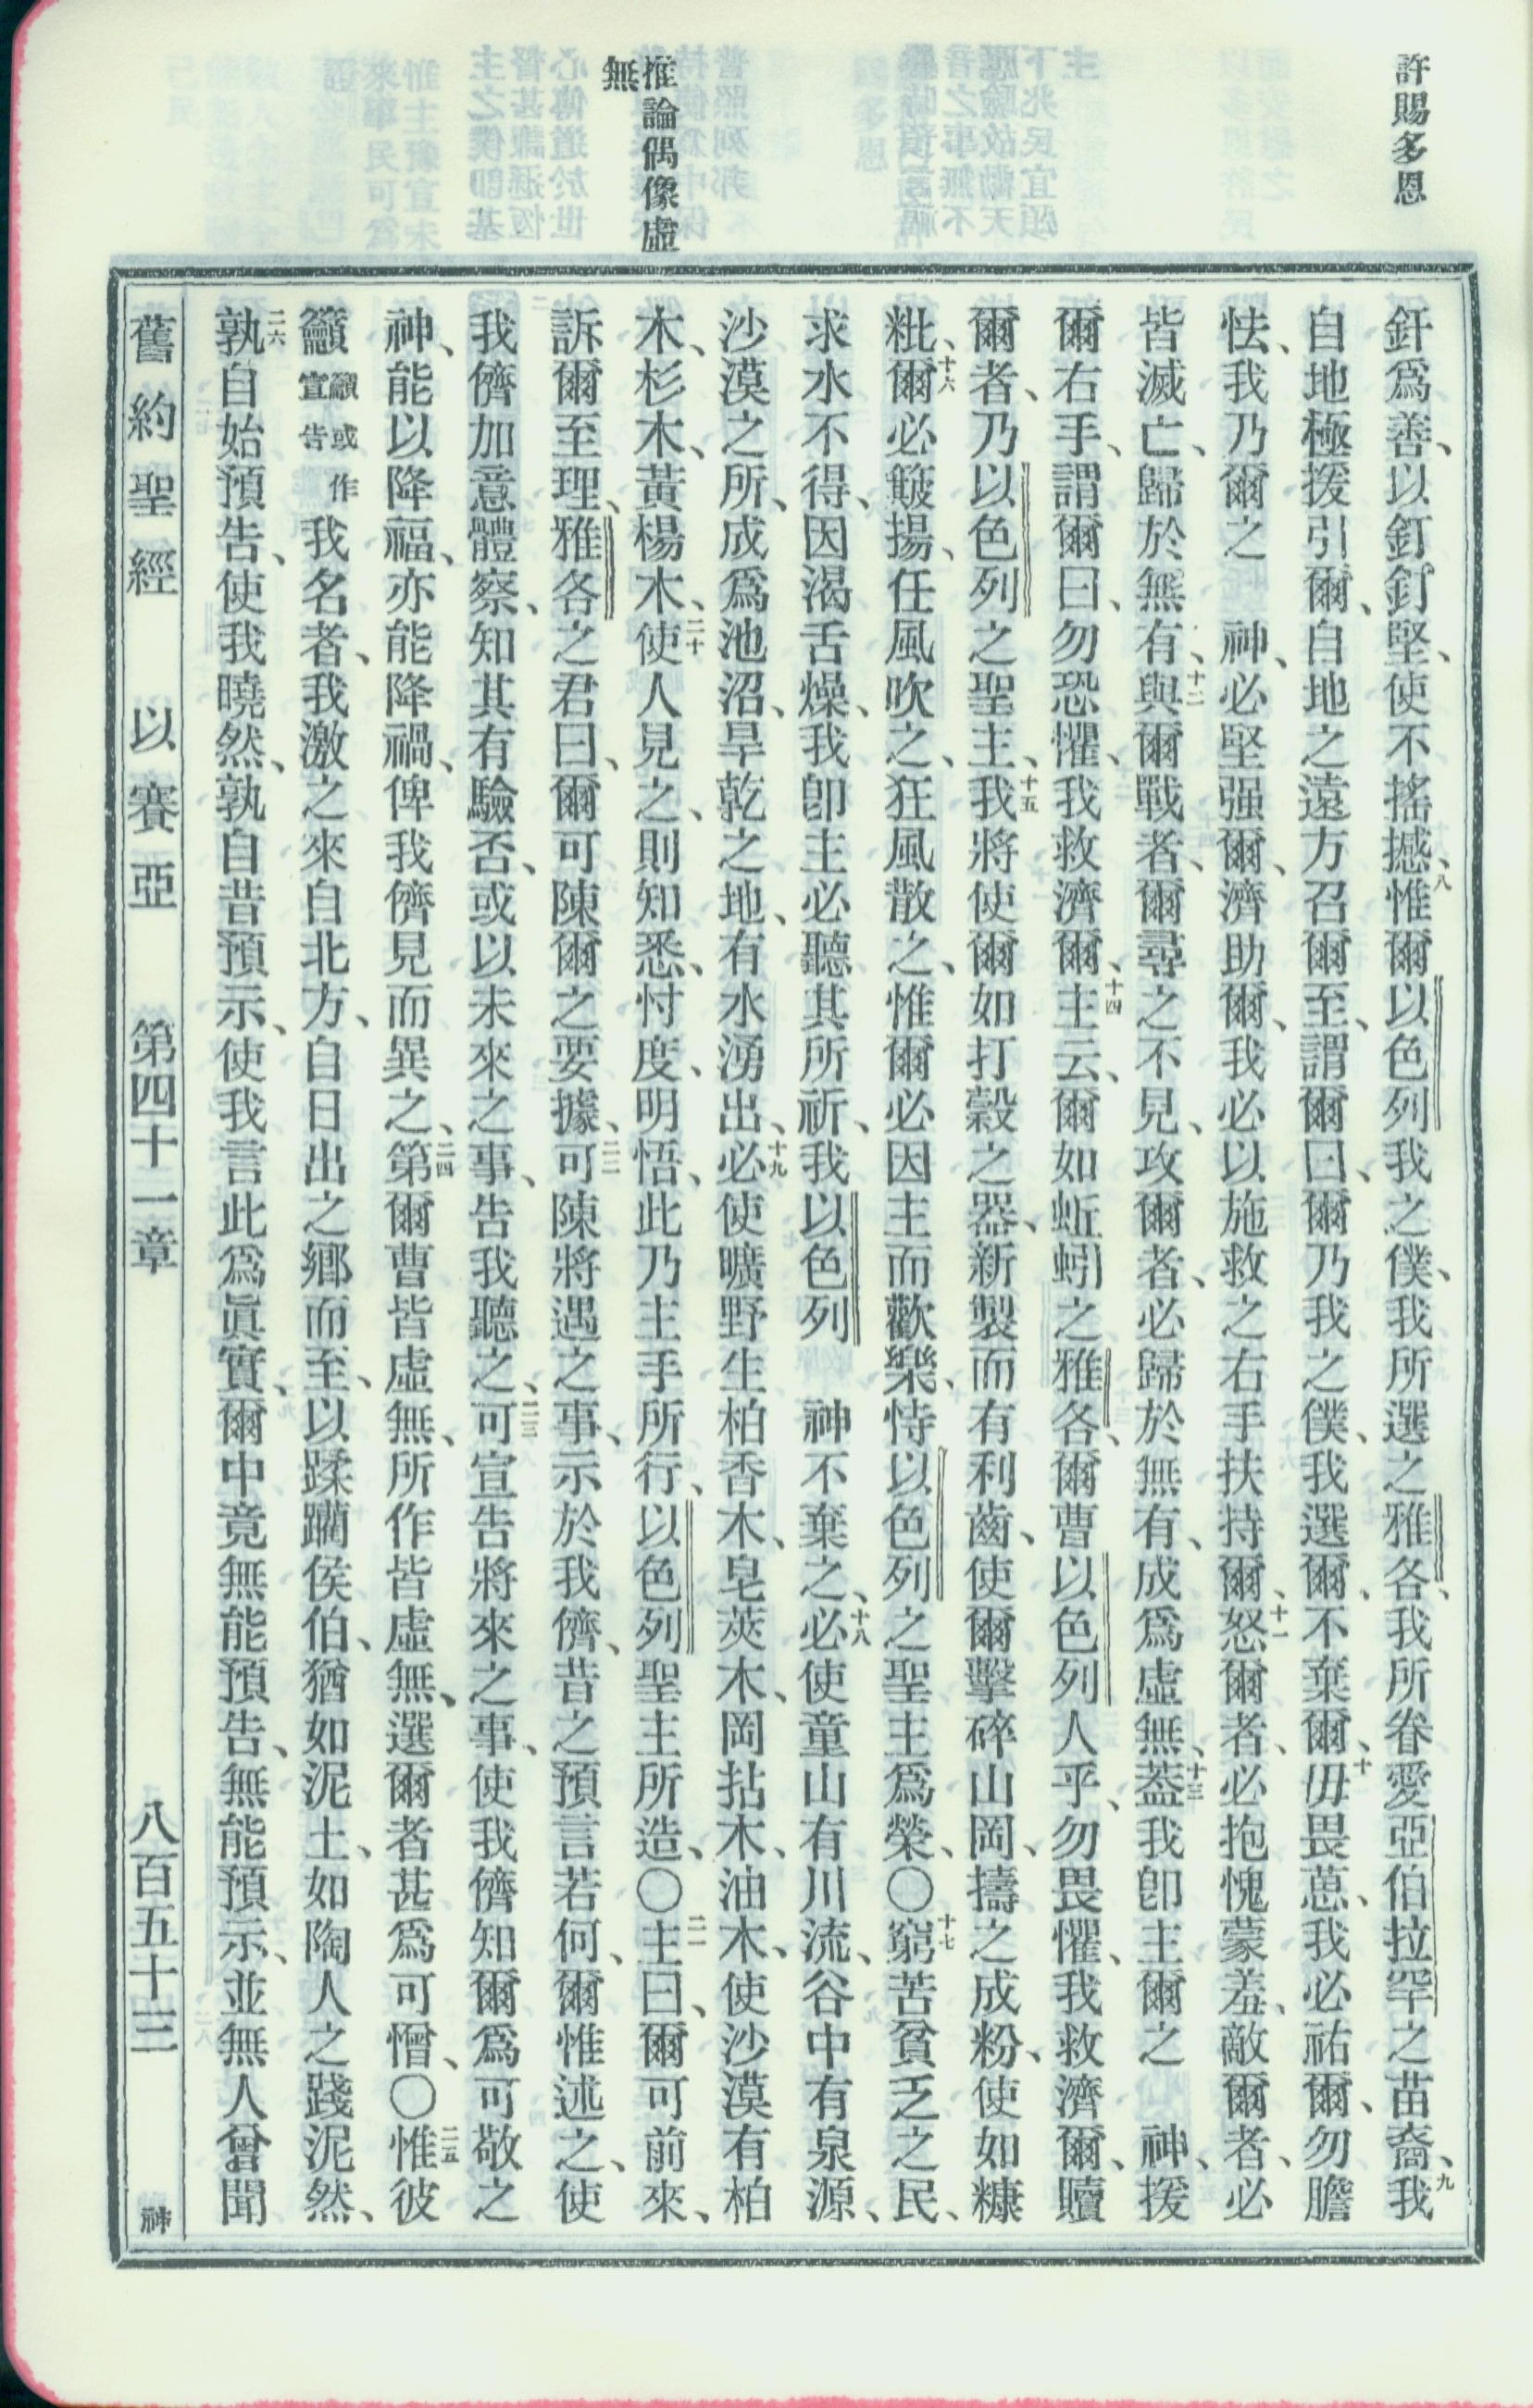 許賜多恩
推論偶像虛
無
釬爲善、以釘釘堅、使不搖撼、八惟爾以色列我之僕、我所選之雅各、我所眷愛亞伯拉罕之苗裔、九我
自地極援引爾、自地之遠方召爾至、謂爾曰、爾乃我之僕、我選爾、不棄爾、十毋畏葸、我必祐爾、勿膽
怯、我乃爾之　神、必堅强爾、濟助爾、我必以施救之右手扶持爾、十一怒爾者、必抱愧蒙羞、敵爾者、必
皆滅亡、歸於無有、十二與爾戰者、爾尋之不見、攻爾者、必歸於無有、成爲虛無、十三葢我卽主爾之　神、援
爾右手、謂爾曰、勿恐懼、我救濟爾、十四主云、爾如蚯蚓之雅各、爾曹以色列人乎、勿畏懼、我救濟爾、贖
爾者、乃以色列之聖主、十五我將使爾如打穀之器、新製而有利齒、使爾擊碎山岡、擣之成粉、使如糠
粃、十六爾必簸揚、任風吹之、狂風散之、惟爾必因主而歡樂、恃以色列之聖主爲榮、〇十七窮苦貧乏之民、
求水不得、因渴舌燥、我卽主必聽其所祈、我以色列　神不棄之、十八必使童山有川流、谷中有泉源、
沙漠之所、成爲池沼、旱乾之地、有水湧出、十九必使曠野生柏香木、皂莢木、岡拈木、油木、使沙漠有柏
木、杉木、黃楊木、二十使人見之、則知悉、忖度、明悟、此乃主手所行、以色列聖主所造、〇二一主曰、爾可前來、
訴爾至理、雅各之君曰、爾可陳爾之要據、二二可陳將遇之事、示於我儕、昔之預言若何、爾惟述之、使
我儕加意體察、知其有驗否、或以未來之事、告我聽之、二三可宣告將來之事、使我儕知爾爲可敬之
神、能以降福、亦能降禍、俾我儕見而異之、二四第爾曹皆虛無、所作皆虛無、選爾者甚爲可憎、〇二五惟彼
籲籲或作宣告我名者、我激之來自北方、自日出之鄉而至、以蹂躪侯伯、猶如泥土、如陶人之踐泥然、
二六孰自始預告、使我曉然、孰自昔預示、使我言此爲眞實、爾中竟無能預告、無能預示、並無人曾聞
舊約聖經　以賽亞　第四十一章　八百五十三　神